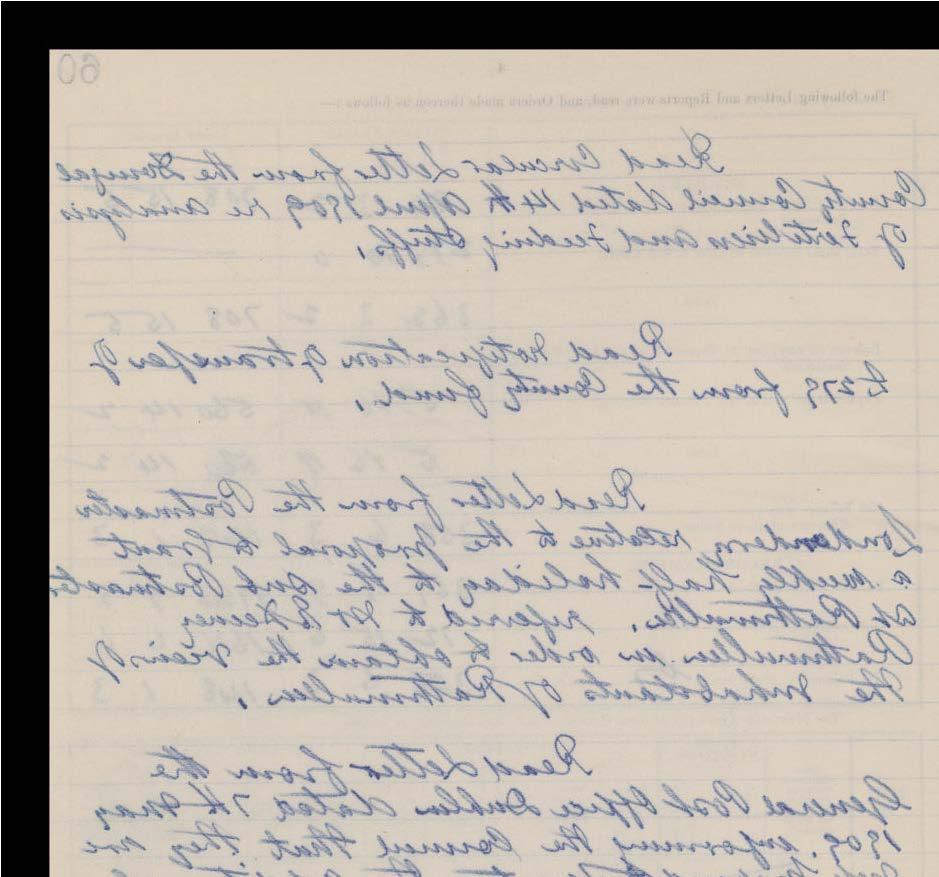 60
4
The following Letters and Reports were read, and Orders made thereon as follows :—
Read Circular Letter from the Donegal
County Council dated 14th April 1909 re analysis
of Fertilisers and Feeding Stuffs.
Read notification of transfer of
£279 from the County fund.
Read Letter from the Postmaster
Londonderry relative to the proposal to grant
a weekly half holiday to the Sub Postmaster
at Rathmullen. referred to Dr
Rathmullen in order to obtain the views of
the inhabitants of Rathmullen.
Read Letter from the
General Post Office Dublin dated 7th May
1909. informing the Council that they are